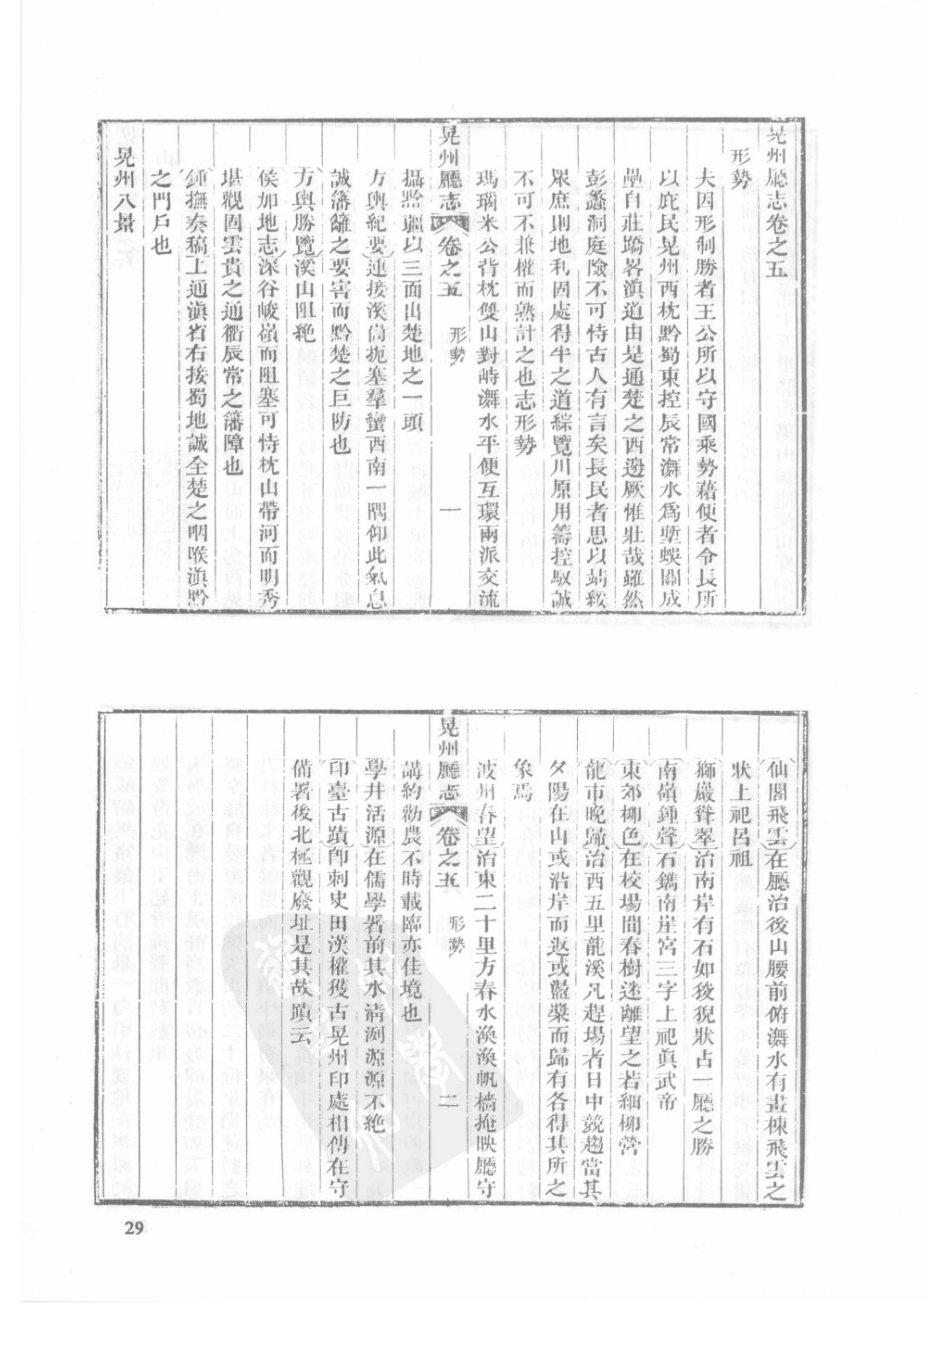 晃州廳志卷之五
形勢
夫因形制勝者王公所以守國乘勢藉便者令長所
以庇民晃州西枕黔蜀東控辰常潕水爲塹蜈關成
壘自莊蹻畧滇道由是通楚之西邊厥惟壯哉雖然
彭蠡洞庭險不可恃古人有言矣長民者思以靖綏
眾庶則地利固處得半之道綜覽川原用籌控馭誠
不可不兼權而熟計之也志形勢
瑪瑙米公背枕雙山對峙潕水平便互環兩派交流
晃州廳志 卷之五 形勢 一
攝黔疆以三面出楚地之一頭
方輿紀要連接溪峝扼塞羣蠻西南一隅仰此氣息
誠藩籬之要害而黔楚之巨防也
方輿勝覽溪山阻絶
侯加地志深谷峻嶺而阻塞可恃枕山帶河而明秀
堪觀固雲貴之通衢辰常之籓障也
鍾撫奏稿上通滇省右接蜀地誠全楚之咽喉滇黔
之門戶也
晃州八景
仙閣飛雲在廳治後山腰前俯潕水有畫棟飛雲之
狀上祀呂祖
獅巖聳翠治南岸有石如狻猊狀占一廳之勝
南嶺鍾聲石鐫南崖宮三字上祀眞武帝
東郊柳色在校場間春樹迷離望之若細柳營
龍市晚歸治西五里龍溪凡趕場者日中競趨當其
夕陽在山或沿岸而返或艤槳而歸有各得其所之
象焉
波州春望治東二十里方春水渙渙帆檣掩映廳守
晃州廳志 卷之五 形勢 二
講約勸農不時載臨亦佳境也
學井活源在儒學者前其水清洌源源不絶
印臺古蹟卽刺史田漢權獲古晃州印處相傳在守
備署後北極觀廢址是其故蹟云
29